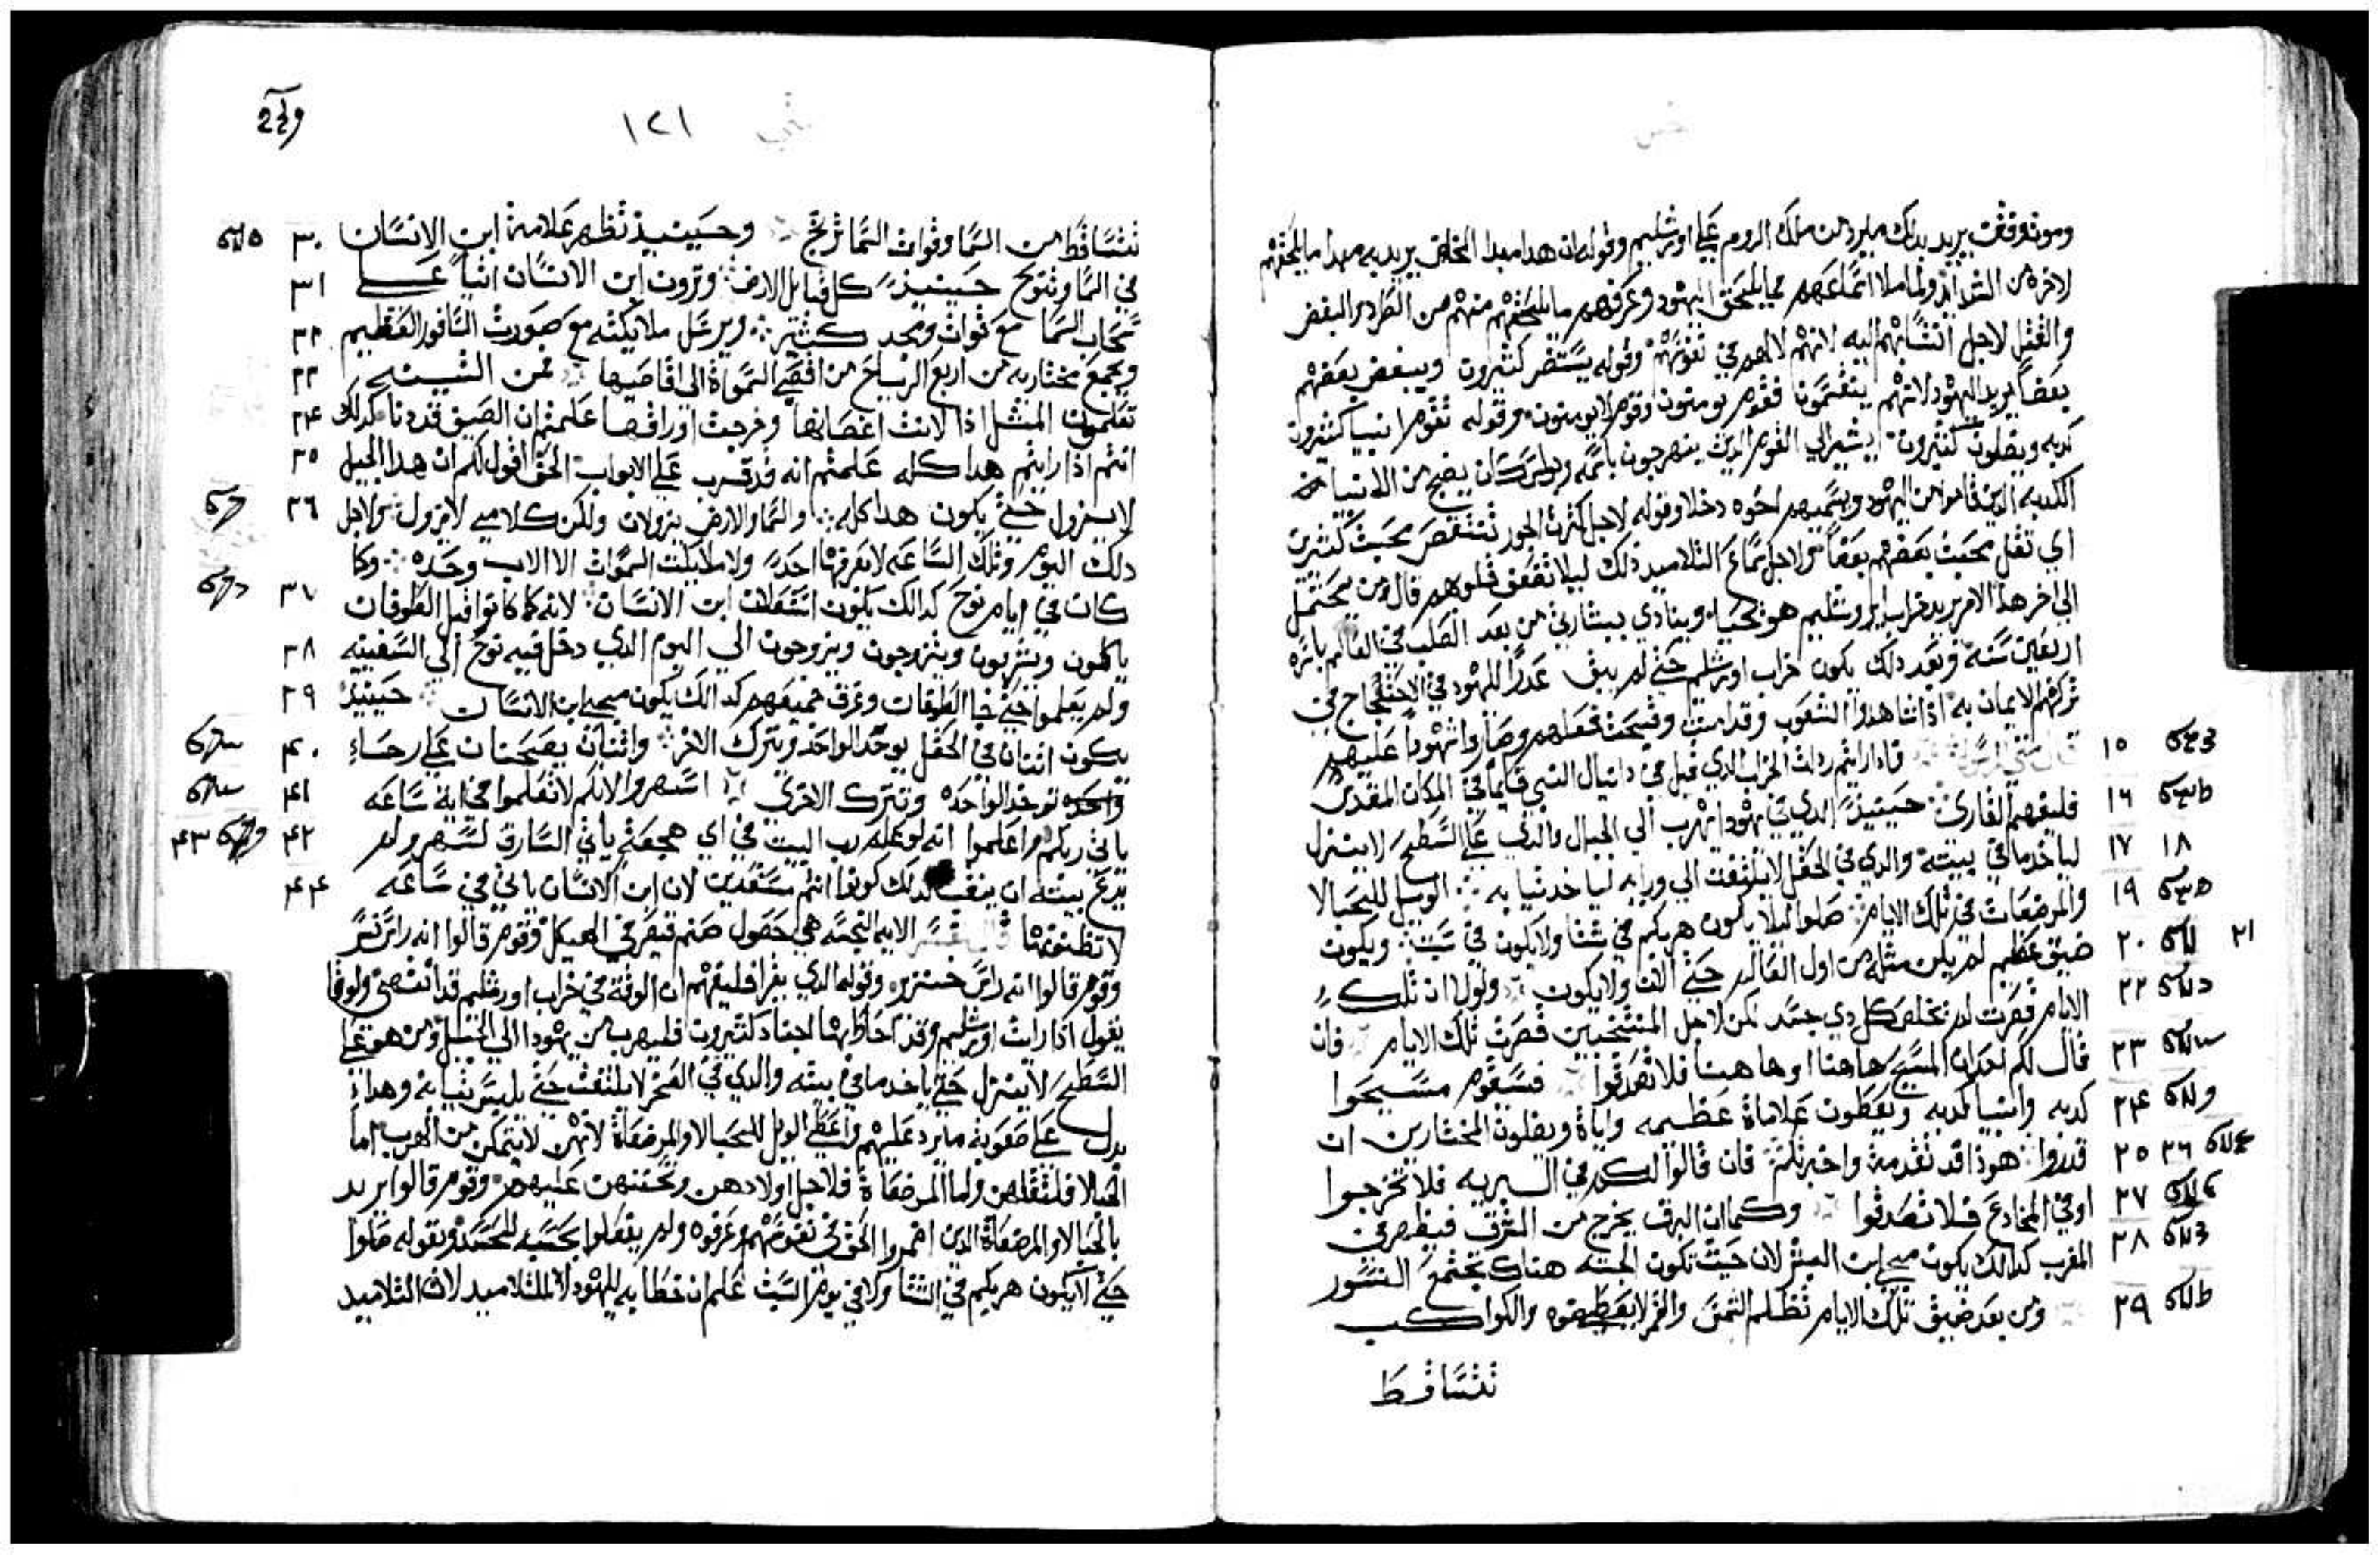 وموته وقت يريد بدلك مايرد من ملك الروم علي اورشليم وقوله ان هدا مبدا المخاض يريد به مبدا مايلحقهم
لاخره من الشدايد ولما ملا اسماعهم بما يلحق اليهود وعرفهم مايلحقهم منهم من الطرد والبغض
والقتل لاجل انتسابهم اليه لانهم لالهم في نفوسهم وقوله يستضر كثيرون ويبغض بعضهم
بعضا يريد اليهود لانهم ينقسمون فقوم يومنون وقوم لا يومنون وقوله تقوم انبيا كثيرون
كدبه ويضلون كثيرون يشير الي القوم الدين ينهرجون باسمه وبولس كان يضج من الانبيا
الكدبه الدين قاموا من اليهود ويسميهم اخوه دخلا وقوله لاجل كثرة الجور تنتقص محبت كثيرين
اي تقل محبت بعضهم بعضا ولاجل سماع التلاميد دلك ليلا تقفق قلوبهم قال من يحتمل
الي اخر هدا الامر يريد خراب اورشليم هو يحيا وينادي ببشارتي من بعد الصلب في العالم باسره
اربعين سنة وبعد دلك يكون خراب اورشلم حتي لم يبق عدرا لليهود في الاحتجاج في
تركهم الايمان به ادا شاهدوا الشعوب وقد امنت وقبحت فعلهم وصاروا شهودا عليهم
١٥ قال متي الرسول فادا رايتم ردلت الخراب الدي قيل في دانيال النبي قايما في المكان المقدس
١٦ فليفهم القاري حينيد الدي في يهودا يهرب الي الجبال والدي علي السطح لا ينزل
١٧ ١٨ لياخد ما في بيته والدي في الحقل لا يلتفت الي ورايه لياخد تيابه الويل للحبالا
١٩ والمرضعات في تلك الايام صلوا ليلا يكون هربكم في شتا ولا يكون في سبت ويكون
٢٠ ٢١ ضيق عظيم لم يكن مثله من اول العالم حتي الان ولا يكون ولولا ان تلك
٢٢ الايام قصرت لم يخلص كل دي جسد لكن لاجل المنتخبين قصرت تلك الايام فان
٢٣ قال لكم احد ان المسيح هاهنا او هاهنا فلا تصدقوا فسيقوم مسيحوا
٢٤ كدبه وانبيا كدبه ويعطون علاماة عظيمه واياة ويضلون المختارين ان
٢٥ ٢٦ قدروا هودا قد تقدمة واخبرتكم فان قالوا لكم في البريه فلا تخرجوا
٢٧ او في المخادع فلا تصدقوا وكما ان البرق يخرج من المشرق فيظهر في
٢٨ المغرب كدالك يكون مجي ابن البشر لان حيت تكون الجته هناك تجتمع النسور
٢٩ ومن بعد ضيق تلك الايام تظلم الشمس والقمر لا يعطي ضوه والكواكب
تتساقط
١٢١
تتساقط من السما وقوات السما ترتج وحينيد تظهر علامة ابن الانسان ٣٠
في السما وتنوح حينيد كل قبايل الارض وترون ابن الانسان اتيا علي ٣١
سحاب السما مع قوات ومجد كثير ويرسل ملايكته مع صورت السافور العظيم ٣٢
ويجمع مختاريه من اربع الرياح من اقصي السمواة الي اقاصيها فمن التينه ٣٣
تعلمون المثل ادا لانت اغصانها وخرجت اوراقها علمتم ان الصيف قد دنا كدلك ٣٤
انتم ادا رايتم هدا كله علمتم انه قد قرب علي الابواب الحق اقول لكم ان هدا الجيل ٣٥
لا يزول حتي يكون هدا كله والسما والارض يزولان ولكن كلامي لا يزول ولاجل ٣٦
دلك اليوم وتلك الساعه لا يعرفها احد ولا ملايكت السموات الا الاب وحده وكا
كان في ايام نوح كدالك يكون استعلان ابن الانسان لانه كما كانوا قبل الطوفان ٣٧
ياكلون ويشربون ويتزوجون ويزوجون الي اليوم الدي دخل فيه نوح الي السفينه ٣٨
ولم يعلموا حتي جا الطوفان وغرق جميعهم كدالك يكون مجي ابن الانسان حينيد ٣٩
يكون اثنان في الحقل يوخد الواحد ويترك الاخر واثنان يطحنان علي رحاء ٤٠
واحده توخد الواحده وتترك الاخري اسهروا لانكم لا تعلموا في اية ساعه ٤١
ياتي ربكم واعلموا انه لو علم رب البيت في اي هجعة ياتي السارق لسهر ولم ٤٢ ٤٣
يدع بيته ان ينقب كدلك كونوا انتم مستعدين لان ابن الانسان ياتي في ساعه ٤٤
لا تظنونها قال المفسر الايه النجسه هي حصول صنم قيصر في الهيكل وقوم قالوا انه راس نسر
وقوم قالوا انه راس خنزير وقوله الدي يقرا فليفهم ان الوقة في خراب اورشليم قد انتهي ولوقا
يقول ادا رايت اورشليم وقد احاط بها اجناد كثيرون فليهرب من يهودا الي الجبل ومن هو علي
السطح لا ينزل حتي ياخد ما في بيته والدي في الصحرا لا يلتفت حتي يلبس تيابه وهدا
يدل علي صعوبة مايرد عليهم واعطي الويل للحبالا والمرضعاة لانهن لا يتمكن من الهرب اما
الحبالا فلتقلهن واما المرضعاة فلاجل اولادهن وتحننهن عليهم وقوم قالوا يريد
بالحبالا والمرضعاة الدين اضمروا الحق في نفوسهم وعرفوه ولم يفعلوا بحسبه للحسد وبقوله صلوا
حتي لا يكون هربكم في الشتا ولا في يوم السبت علم ان خطابه لليهود لا للتلاميد لان التلاميد